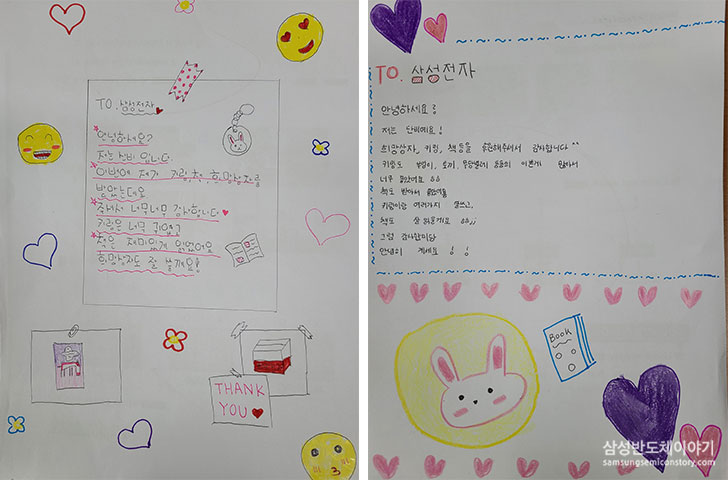 TO. 삼성전자
안녕하세요?
저는 단비 입니다.
이번에 제가 키링, 책, 희망상자를
받았는데요
주셔서 너무너무 감사합니다
키링은 너무 귀엽고
책은 재미있게 읽었어요
희망상자도 잘 쓸게요!
THANK
YOU
TO. 삼성전자
안녕하세요!
저는 단비예요!
희망상자, 키링, 책등을 해주셔서 감사합니다^^
키링도 토끼, 이쁜게 있어서
너무 좋았어요
책도 받아서 좋았어요
키링이랑 여러가지 잘쓰고,
책도 잘 읽을게요
그럼 감사합니당
안녕히 계세요
BOOK
삼성반도체이야기
samsungsemiconstory.com